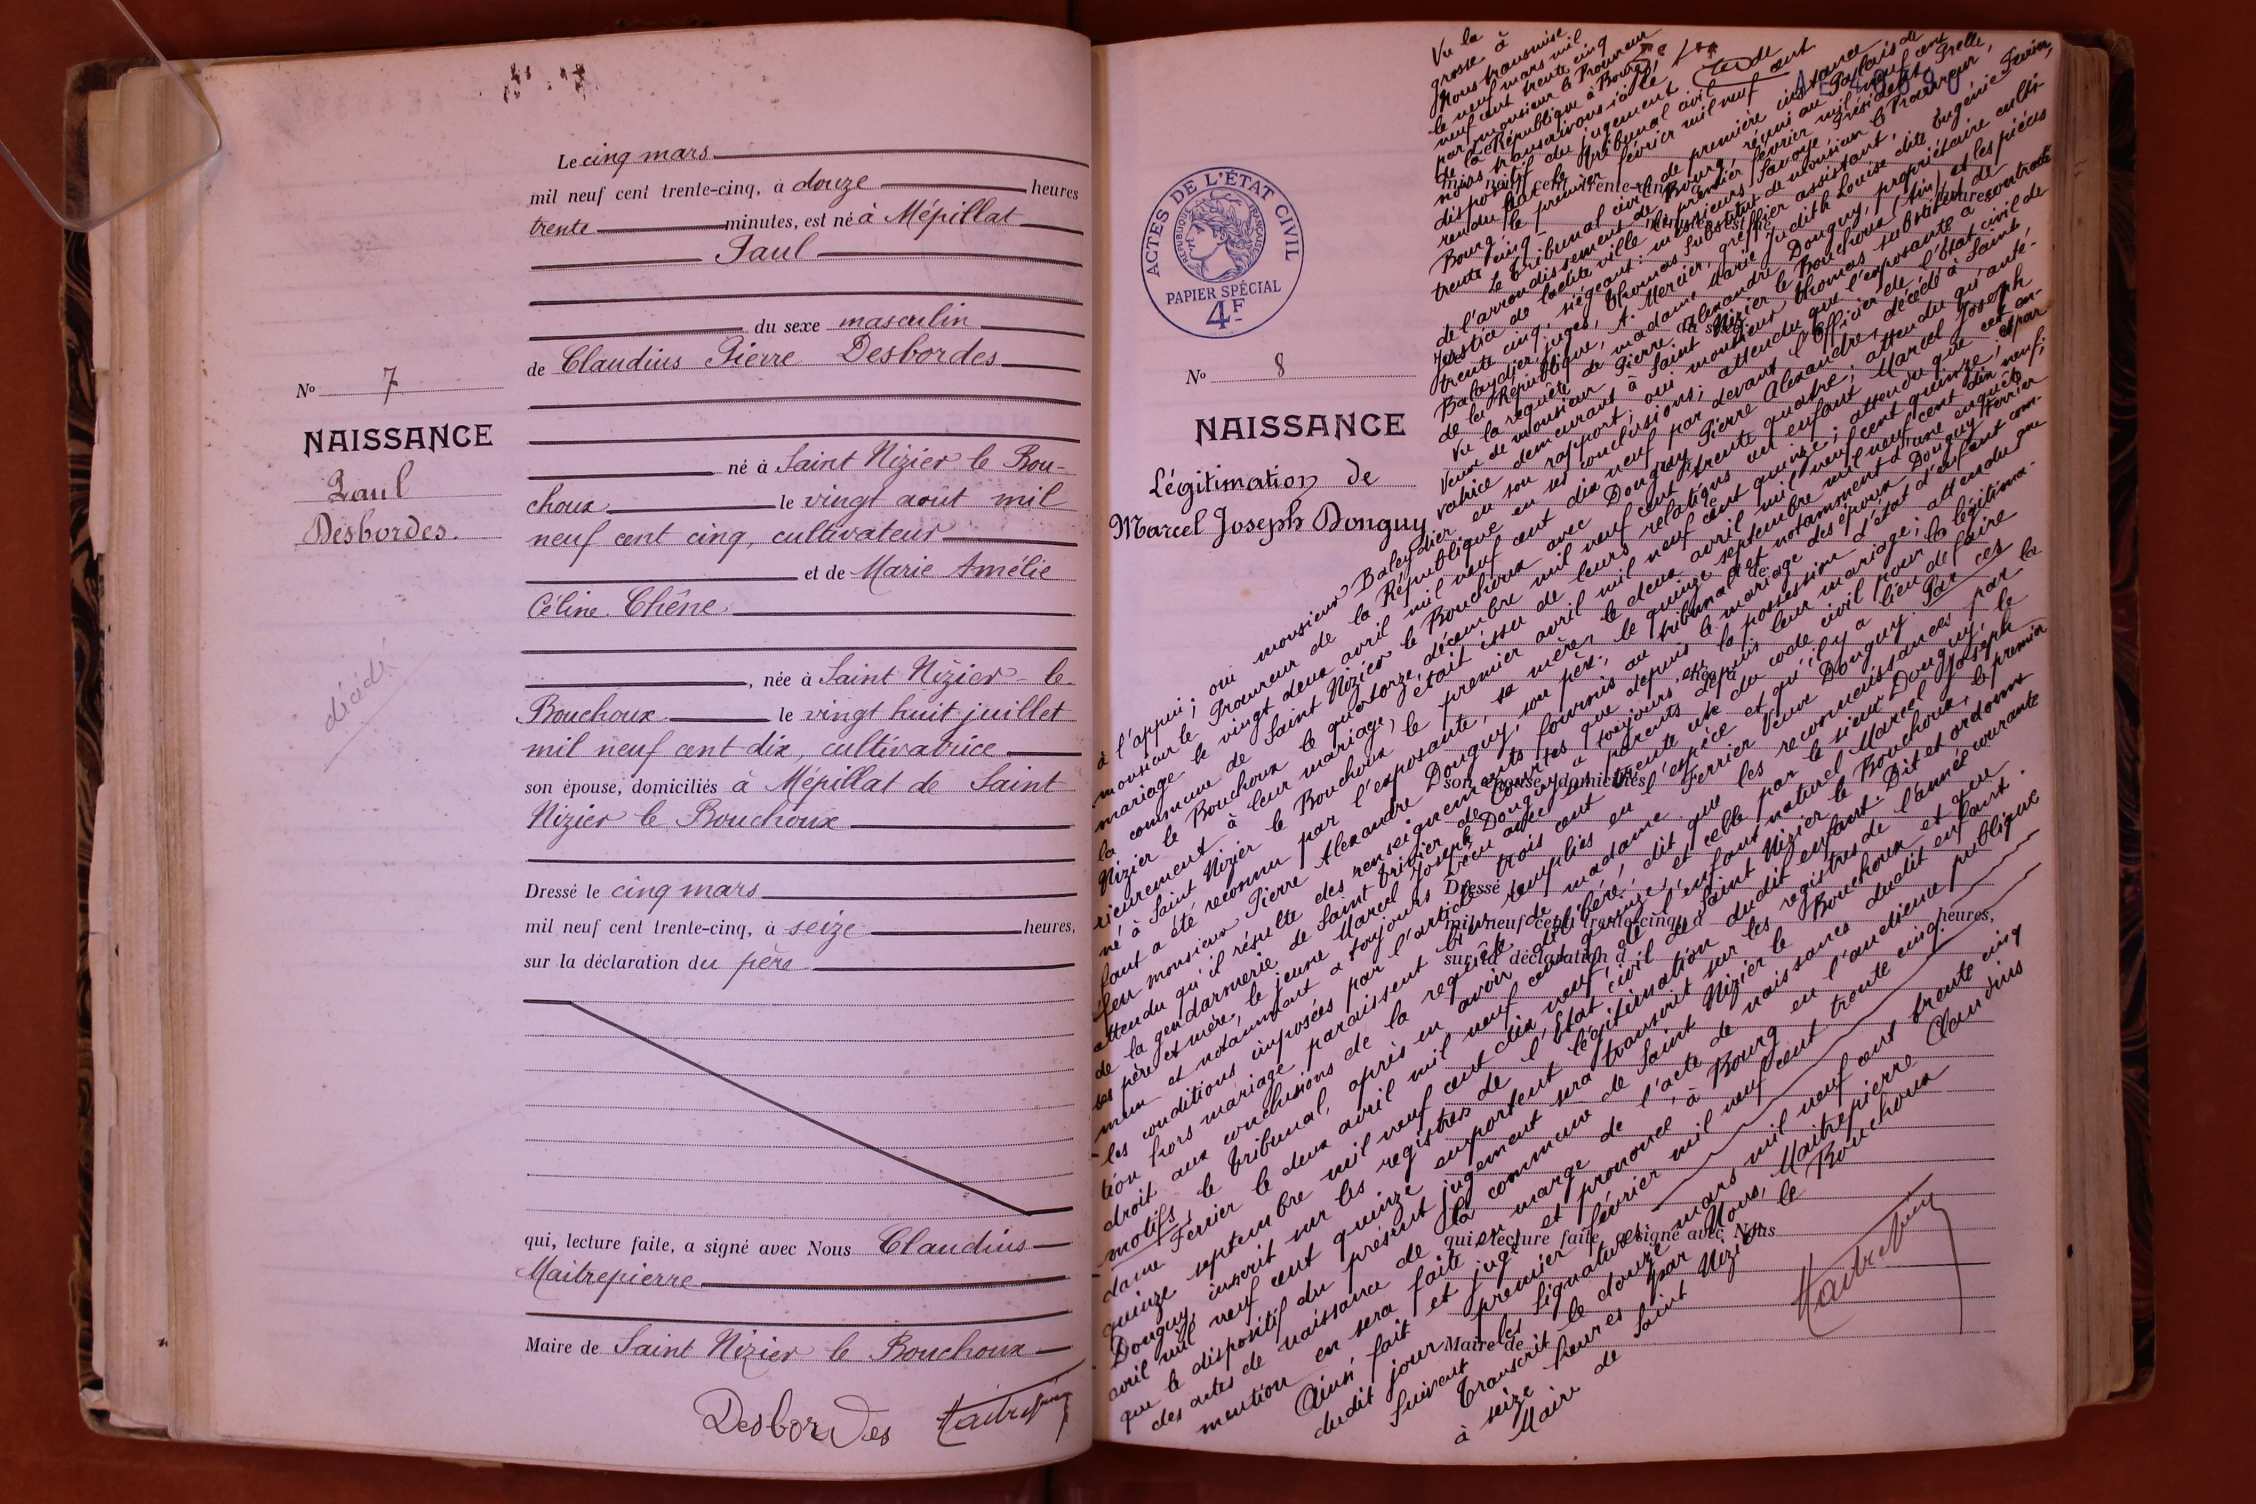 Le cinq mars
mil neuf cent trente-cinq, à douze heures
trente minutes, est né à Mépillat
Paul
du sexe masculin
de Claudius Pierre Desbordes
né à Saint Nizier le Bou-
choux le vingt août mil
neuf cent cinq, cultivateur
et de Marie Amélie
Céline Chêne
, née à Saint Nizier le
Bouchoux le vingt huit juillet
mil neuf cent dix, cultivatrice
son épouse, domiciliés à Mépillat de Saint
Nizier le Bouchoux
Dressé le cinq mars
mil neuf cent trente-cinq, à seize heures,
sur la déclaration du père
qui, lecture faite, a signé avec Nous Claudius
Maitrepierre
Maire de Saint Nizier le Bouchoux
Desbordes
Nº 7
NAISSANCE
Paul
Desbordes.
décédé
ACTES DE L'ÉTAT CIVIL
RÉPUBLIQUE FRANÇAISE
PAPIER SPÉCIAL
4F
Nº 8
NAISSANCE
Légitimation de
Marcel Joseph Donguy
Vu la
grosse à
nous transmise
le neuf mars mil
neuf cent trente cinq
par monsieur le Procureur
de la République à Bourg,
nous transcrivons ici le
dispositif du jugement
rendu par le tribunal civil de
Bourg, le premier février mil neuf cent
trente cinq
Le tribunal civil de première instance
de l'arrondissement de Bourg, réuni au Palais de
Justice de ladite ville le premier février mil neuf cent
trente cinq, siégeant: messieurs Savoye, Président, Grelle,
Balaydier, juges, Thomas substitut de monsieur le Procureur
de la République, A. Mercier, greffier assistant,
Vu la requête de madame Marie Judith Louise dite Eugénie Ferrier,
veuve de monsieur Pierre Alexandre Donguy, propriétaire culti-
vatrice demeurant à Saint Nizier le Bouchoux (Ain) et les pièces
à l'appui; oui monsieur Balaydier en son rapport; oui monsieur Thomas substitut de
monsieur le Procureur de la République en ses conclusions; attendu que l'exposante a contracté
mariage le vingt deux avril mil neuf cent dix neuf par devant l'Officier de l'état civil de
la commune de Saint Nizier le Bouchoux avec Donguy Pierre Alexandre, décédé à Saint
Nizier le Bouchoux le quatorze décembre mil neuf cent trente quatre; attendu qu'anté-
rieurement à leur mariage, était issu de leurs relations un enfant Marcel Joseph
né à Saint Nizier le Bouchoux le premier avril mil neuf cent quinze; attendu que cet en-
fant a été reconnu par l'exposante, sa mère, le deux avril mil neuf cent quinze, et par
feu monsieur Pierre Alexandre Donguy, son père, le quinze septembre mil neuf cent dix neuf;
attendu qu'il résulte des renseignements fournis au tribunal et notamment d'une enquête
de la gendarmerie de Saint Trivier de Courtes que depuis le mariage des époux Donguy Ferrier
ses père et mère, le jeune Marcel Joseph Donguy a toujours eu la possession d'état d'enfant com-
mun et notamment a toujours vécu avec ses parents depuis leur mariage; attendu que
les conditions imposées par l'article trois cent trente un du code civil pour la légitima-
tion hors mariage paraissent bien remplies en l'espèce et qu'il y a lieu de faire
droit aux conclusions de la requête de madame Ferrier Veuve Donguy. Par ces
motifs, le tribunal, après en avoir délibéré, dit que les reconnaissances par la
dame Ferrier le deux avril mil neuf cent quinze, et celle par le sieur Donguy, le
quinze septembre mil neuf cent dix neuf, de l'enfant naturel Marcel Joseph
Donguy, inscrit sur les registres de l'Etat civil de Saint Nizier le Bouchoux, le premier
avril mil neuf cent quinze emportent légitimation dudit enfant. Dit et ordonne
que le dispositif du présent jugement sera transcrit sur les registres de l'année courante
des actes de naissance de la commune de Saint Nizier le Bouchoux et que
mention en sera faite en marge de l'acte de naissance dudit enfant.
Ainsi fait et jugé et prononcé à Bourg en l'audience publique
dudit jour premier février mil neuf cent trente cinq.
Suivent les signatures
Transcrit le douze mars mil neuf cent trente cinq
à seize heures par Nous, Maitrepierre Claudius
Maire de Saint Nizier le Bouchoux
heures,
son épouse, domiciliés
Dressé
mil neuf cent trente-cinq, à heures,
sur la déclaration d
qui, lecture faite, a signé avec Nous
Maire de